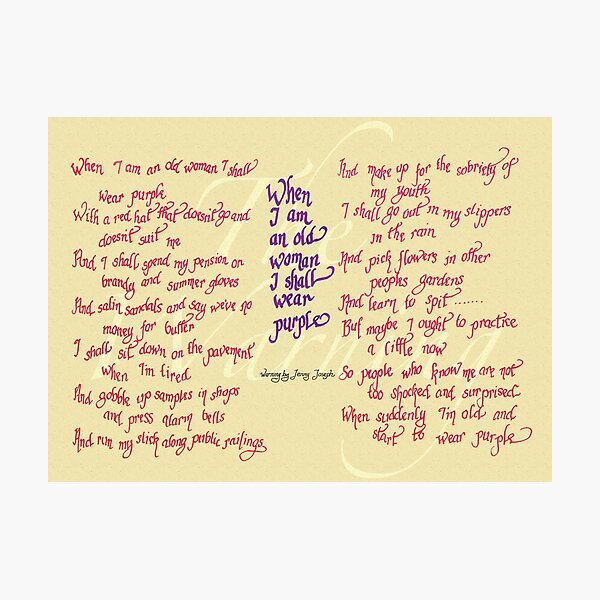 When I am an old woman I shall
wear purple
With a red hat that doesn't go and
doesn't suit me
And I shall spend my pension on
brandy and summer gloves
And satin sandals and say we've no
money for butter
I shall sit down on the pavement
when I'm tired
And gobble up samples in shops
and press alarm bells
And run my stick along public railings
When
I am
an old
woman
I shall
wear
purple
Warning by Jenny Joseph
And make up for the sobriety of
my youth
I shall go out in my slippers
in the rain
And pick flowers in other
peoples gardens
And learn to spit.......
But maybe I ought to practice
a little now
So people who know me are not
too shocked and surprised
When suddenly I'm old and
start to wear purple
The
Warning